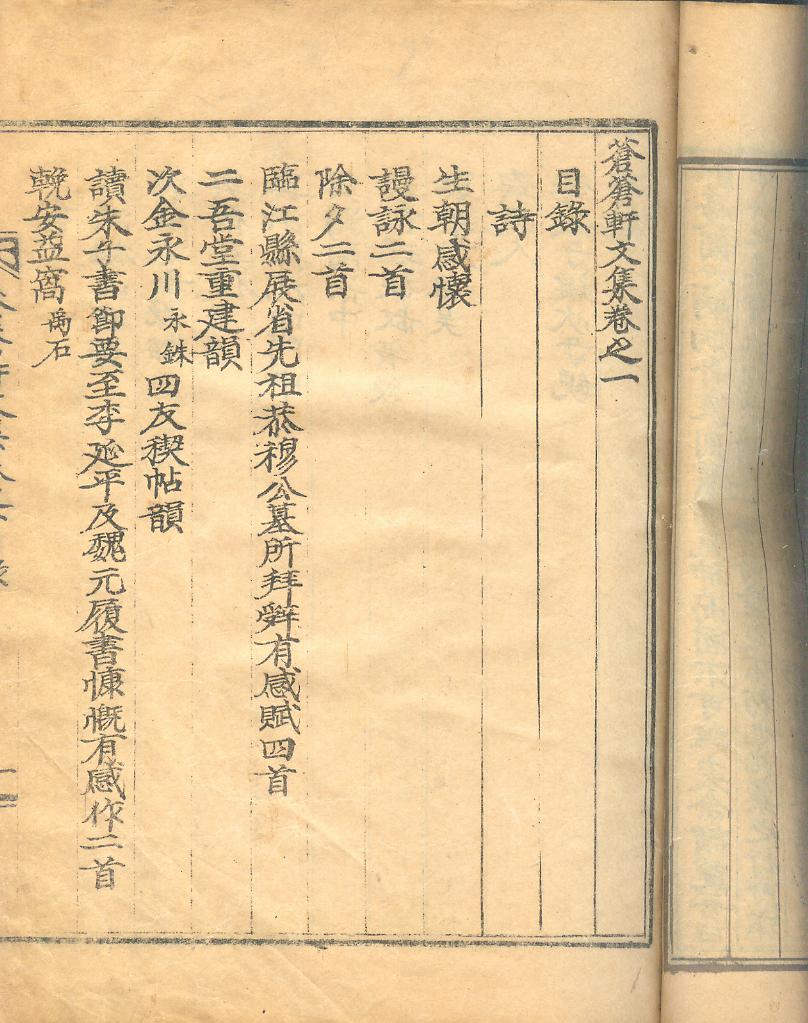 蒼蒼軒文集卷之一
目錄
詩
生朝感懷
謾詠二首
除夕二首
臨江縣展省先祖恭穆公墓所拜辭有感賦四首
二吾堂重建韻
次金永川永銖四友稧帖韻
讀朱子書節要至李延平及魏元履書慷慨有感作二首
輓安益窩禹石